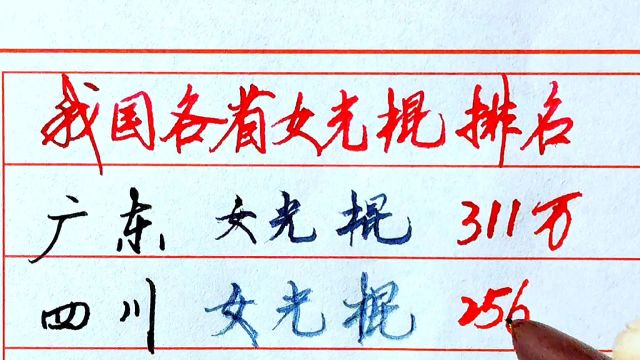 我国各省女光棍排名
广东 女光棍 311万
四川 女光棍 256